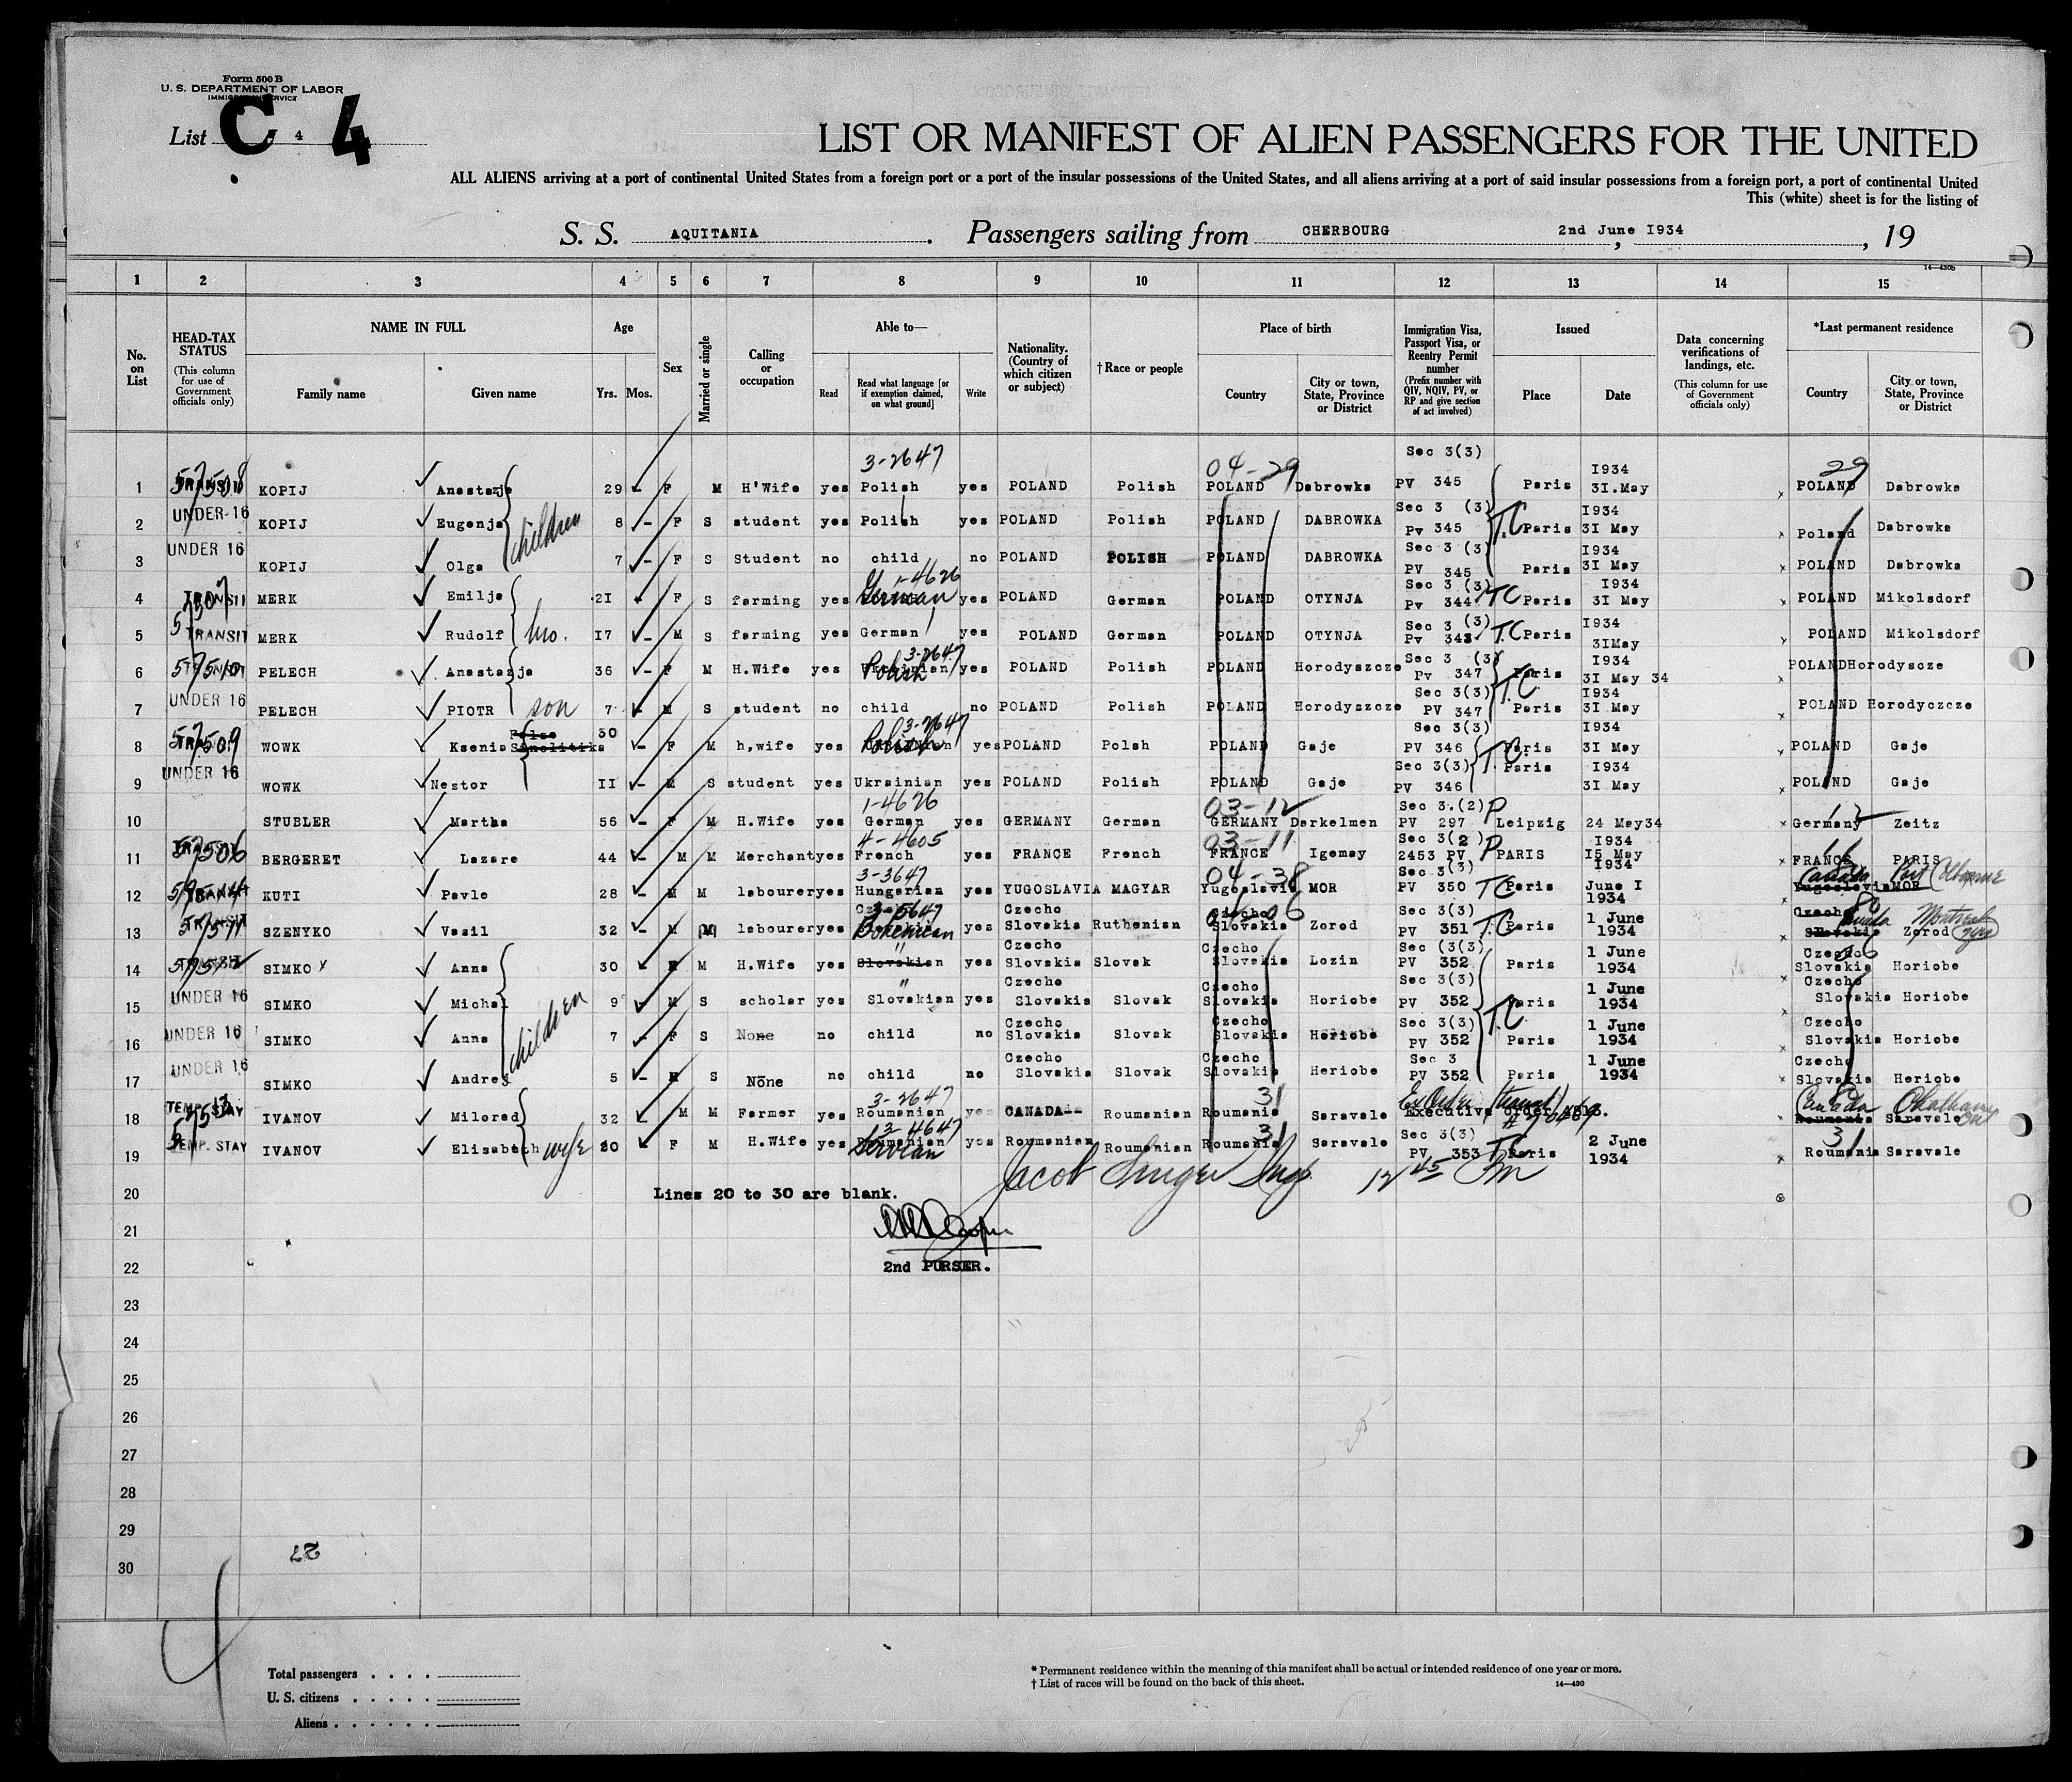 Form 500 B
U. S. DEPARTMENT OF LABOR
IMMIGRATION SERVICE
List C 4 4
LIST OR MANIFEST OF ALIEN PASSENGERS FOR THE UNITED
ALL ALIENS arriving at a port of continental United States from a foreign port or a port of the insular possessions of the United States, and all aliens arriving at a port of said insular possessions from a foreign port, a port of continental United
This (white) sheet is for the listing of
S. S. AQUITANIA. Passengers sailing from CHERBOURG 2nd June I934, , 19
14—430b
1 2 3 4 5 6 7 8 9 10 11 12 13 14 15
No. on List
HEAD-TAX STATUS (This column for use of Government officials only)
NAME IN FULL Family name Given name
Age Yrs. Mos.
Sex
Married or single
Calling or occupation
Able to— Read Read what language [or if exemption claimed, on what ground] Write
Nationality. (Country of which citizen or subject)
†Race or people
Place of birth Country City or town, State, Province or District
Immigration Visa, Passport Visa, or Reentry Permit number (Prefix number with QIV, NQIV, PV, or RP and give section of act involved)
Issued Place Date
Data concerning verifications of landings, etc. (This column for use of Government officials only)
*Last permanent residence Country City or town, State, Province or District
3-2647 04-29 Sec 3(3) I934 29
1 57508 KOPIJ Anastazja 29 - F M H'Wife yes Polish yes POLAND Polish POLAND Dabrowka PV 345 Paris 3I.May POLAND Dabrowka
2 UNDER-16 KOPIJ Eugenja children 8 - F S student yes Polish yes POLAND Polish POLAND DABROWKA Sec 3 (3) Pv 345 T.C Paris I934 3I May Poland Dabrowka
3 UNDER 16 KOPIJ Olga 7 - F S Student no child no POLAND POLISH POLAND DABROWKA Sec 3 (3) PV 345 Paris I934 3I May POLAND Dabrowka
4 TRANSIT MERK Emilja 2I - F S farming yes 1-4626 German yes POLAND German POLAND OTYNJA Sec 3 (3) Pv 344 TC Paris I934 3I May POLAND Mikolsdorf
5 TRANSIT MERK Rudolf bro. I7 - M S farming yes German yes POLAND German POLAND OTYNJA Sec 3 (3) Pv 343 T.C Paris I934 3IMay POLAND Mikolsdorf
6 57510 PELECH Anastazja 36 - F M H.Wife yes 3-2647 Polish yes POLAND Polish POLAND Horodyszcze Sec 3 (3) Pv 347 Paris I934 3I May 34 POLAND Horodyscze
7 UNDER 16 PELECH PIOTR son 7 - M S student no child no POLAND Polish POLAND Horodyszcze Sec 3(3) PV 347 T.C. Paris I934 3I May POLAND Horodyczcze
8 57509 WOWK Ksenia 30 - F M h,wife yes 3-2647 Polish yes POLAND Polsh POLAND Gaje Sec 3(3) PV 346 T.C. Paris I934 3I May POLAND Gaje
9 UNDER 16 WOWK Nestor II - M S student yes Ukrainian yes POLAND Polish POLAND Gaje Sec 3(3) PV 346 Paris I934 3I May POLAND Gaje
10 STUBLER Martha 56 - F M H.Wife yes 1-4626 German yes GERMANY German 03-12 GERMANY Darkelmen Sec 3.(2) P PV 297 Leipzig 24 May34 12 Germany Zeitz
11 57506 BERGERET Lazare 44 - M M Merchant yes 4-4605 French yes FRANCE French 03-11 FRANCE Igemay Sec 3(2) P 2453 PV PARIS I934 I5 May FRANCE PARIS
12 KUTI Pavle 28 - M M labourer yes 3-3647 Hungarian yes YUGOSLAVIA MAGYAR 04-38 Yugoslavia MOR Sec 3(3) PV 350 TC Paris I934 June I 1934 Canada Port Colborne Yugoslavia MOR
13 57511 SZENYKO Vasil 32 - M M labourer yes 3-5647 Bohemian yes Czecho Slovakia Ruthenian Czecho Slovakia Zorod Sec 3(3) PV 351 T.C Paris 1 June 1934 Czecho Slovakia Canada Montreal Zorod
14 57512 SIMKO Anna 30 M H.Wife yes " Slovakian yes Czecho Slovakia Slovak Czecho Slovakia Lozin Sec (3(3) PV 352 Paris 1 June 1934 Czecho Slovakia Horiobe
15 UNDER 16 SIMKO Michal children 9 - M S scholar yes " Slovakian yes Czecho Slovakia Slovak Czecho Slovakia Horiobe Sec 3(3) PV 352 Paris 1 June 1934 Czecho Slovakia Horiobe
16 UNDER 16 SIMKO Anna 7 - F S None no child no Czecho Slovakia Slovak Czecho Slovakia Horiobe Sec 3(3) PV 352 T.C Paris 1 June 1934 Czecho Slovakia Horiobe
17 UNDER 16 SIMKO Andrej 5 - M S None no child no Czecho Slovakia Slovak Czecho Slovakia Heriobe Sec 3 PV 352 Paris 1 June 1934 Czecho Slovakia Heriobe
18 TEMP. STAY IVANOV Milorad 32 M M Farmer yes 3-2647 Roumanian yes CANADA-- Roumanian 31 Roumania Saravale Ex Order Executive order Canada Chatham Ont Roumania Saravale
19 TEMP. STAY IVANOV Elisabeth wife 20 F M H.Wife yes 13-4647 Roumanian Servian yes Roumanian Roumanian 31 Roumania Saravale Sec 3(3) PV 353 TC Paris 2 June 1934 31 Roumania Saravale
Jacob Singer Insp. 12 45 Pm
20 Lines 20 to 30 are blank.
21
22 2nd PURSER.
23
24
25
26
27
28
29
30
27
Total passengers . . . .
U. S. citizens . . . . .
Aliens . . . . . .
* Permanent residence within the meaning of this manifest shall be actual or intended residence of one year or more.
† List of races will be found on the back of this sheet.
14—430